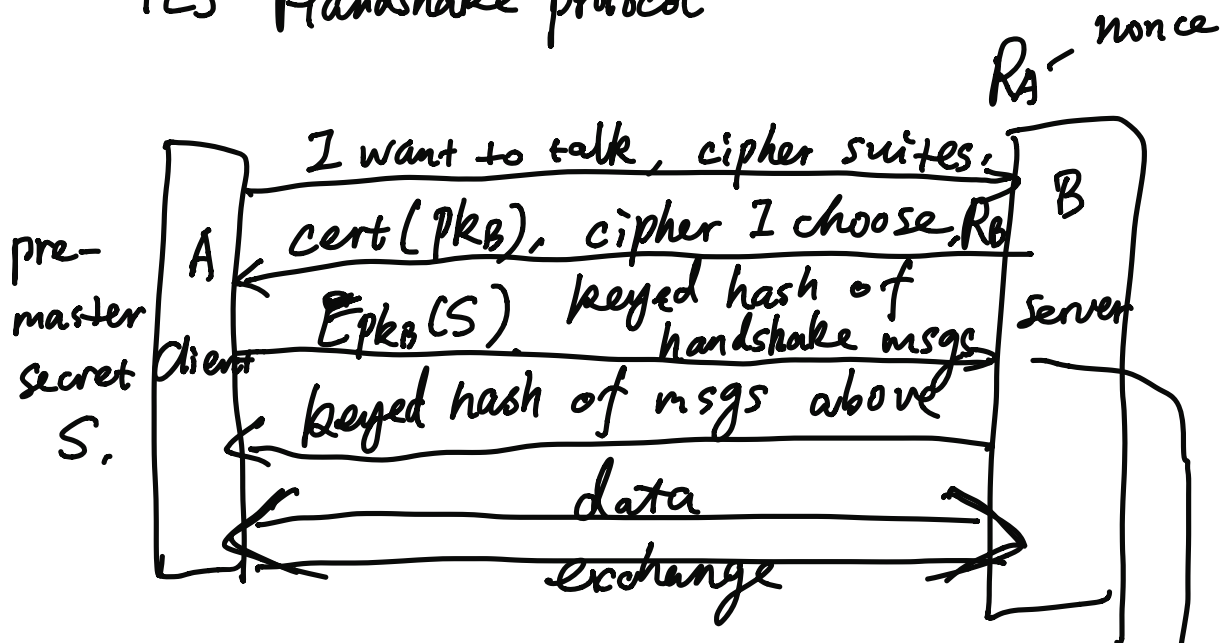 TLS Handshake protocol
RA - nonce
I want to talk, cipher suites.
B
cert(PKB), cipher I choose, RB
A
pre-
master
secret
S.
client
EPKB(S)
keyed hash of
handshake msgs
server
keyed hash of msgs above
data
exchange